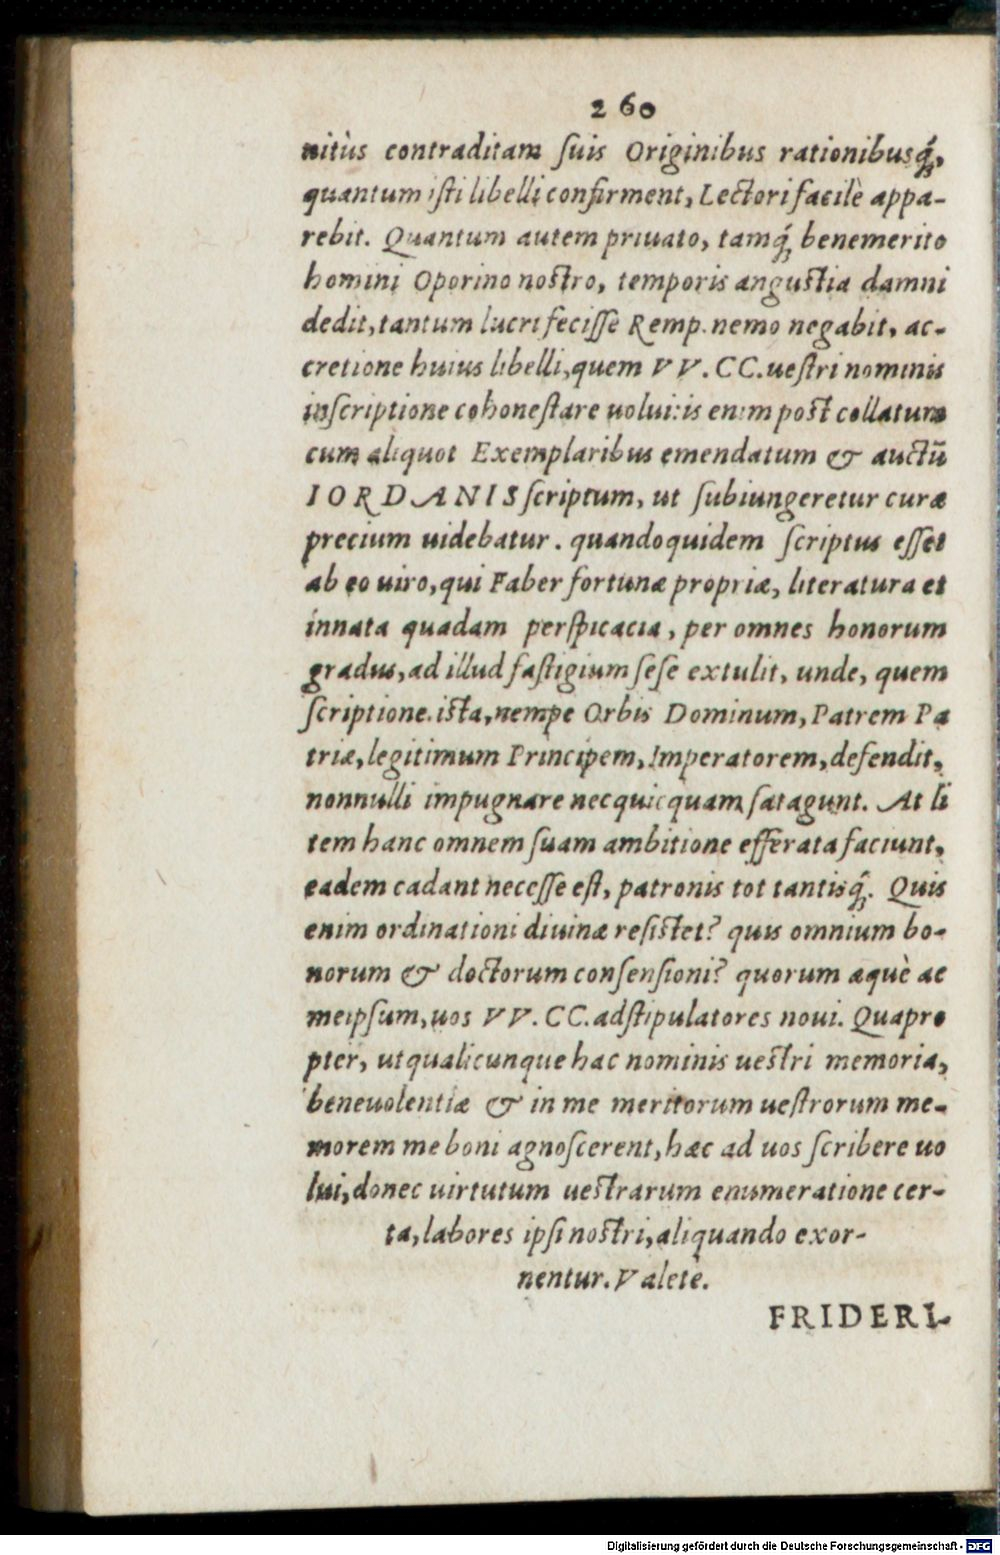 260
nitùs contraditam ſuis Originibus rationibusq́ꝫ,
quantum iſti libelli confirment, Lectori facilè appa-
rebit. Quantum autem priuato, tamq́ꝫ benemerito
homini Oporino noſtro, temporis anguſtia damni
dedit, tantum lucri feciſſe Remp. nemo negabit, ac-
cretione huius libelli, quem VV. CC. ueſtri nominis
inſcriptione cohoneſtare uolui: is enim poſt collatum
cum aliquot Exemplaribus emendatum & auctū
IORDANIS ſcriptum, ut ſubiungeretur curæ
precium uidebatur. quandoquidem ſcriptus eſſet
ab eo uiro, qui Faber fortunæ propriæ, literatura et
innata quadam perſpicacia, per omnes honorum
gradus, ad illud faſtigium ſeſe extulit, unde, quem
ſcriptione iſta, nempe Orbis Dominum, Patrem Pa
triæ, legitimum Principem, Imperatorem, defendit,
nonnulli impugnare necquicquam ſatagunt. At li
tem hanc omnem ſuam ambitione efferata faciunt,
eadem cadant neceſſe eſt, patronis tot tantisq́ꝫ. Quis
enim ordinationi diuinæ reſiſtet? quis omnium bo-
norum & doctorum conſenſioni? quorum æquè ac
meipſum, uos VV. CC. adſtipulatores noui. Quapro
pter, ut qualicunque hac nominis ueſtri memoria,
beneuolentiæ & in me meritorum ueſtrorum me-
morem me boni agnoſcerent, hæc ad uos ſcribere uo
lui, donec uirtutum ueſtrarum enumeratione cer-
ta, labores ipſi noſtri, aliquando exor-
nentur. Valete.
FRIDERI-
Digitalisierung gefördert durch die Deutsche Forschungsgemeinschaft - DFG